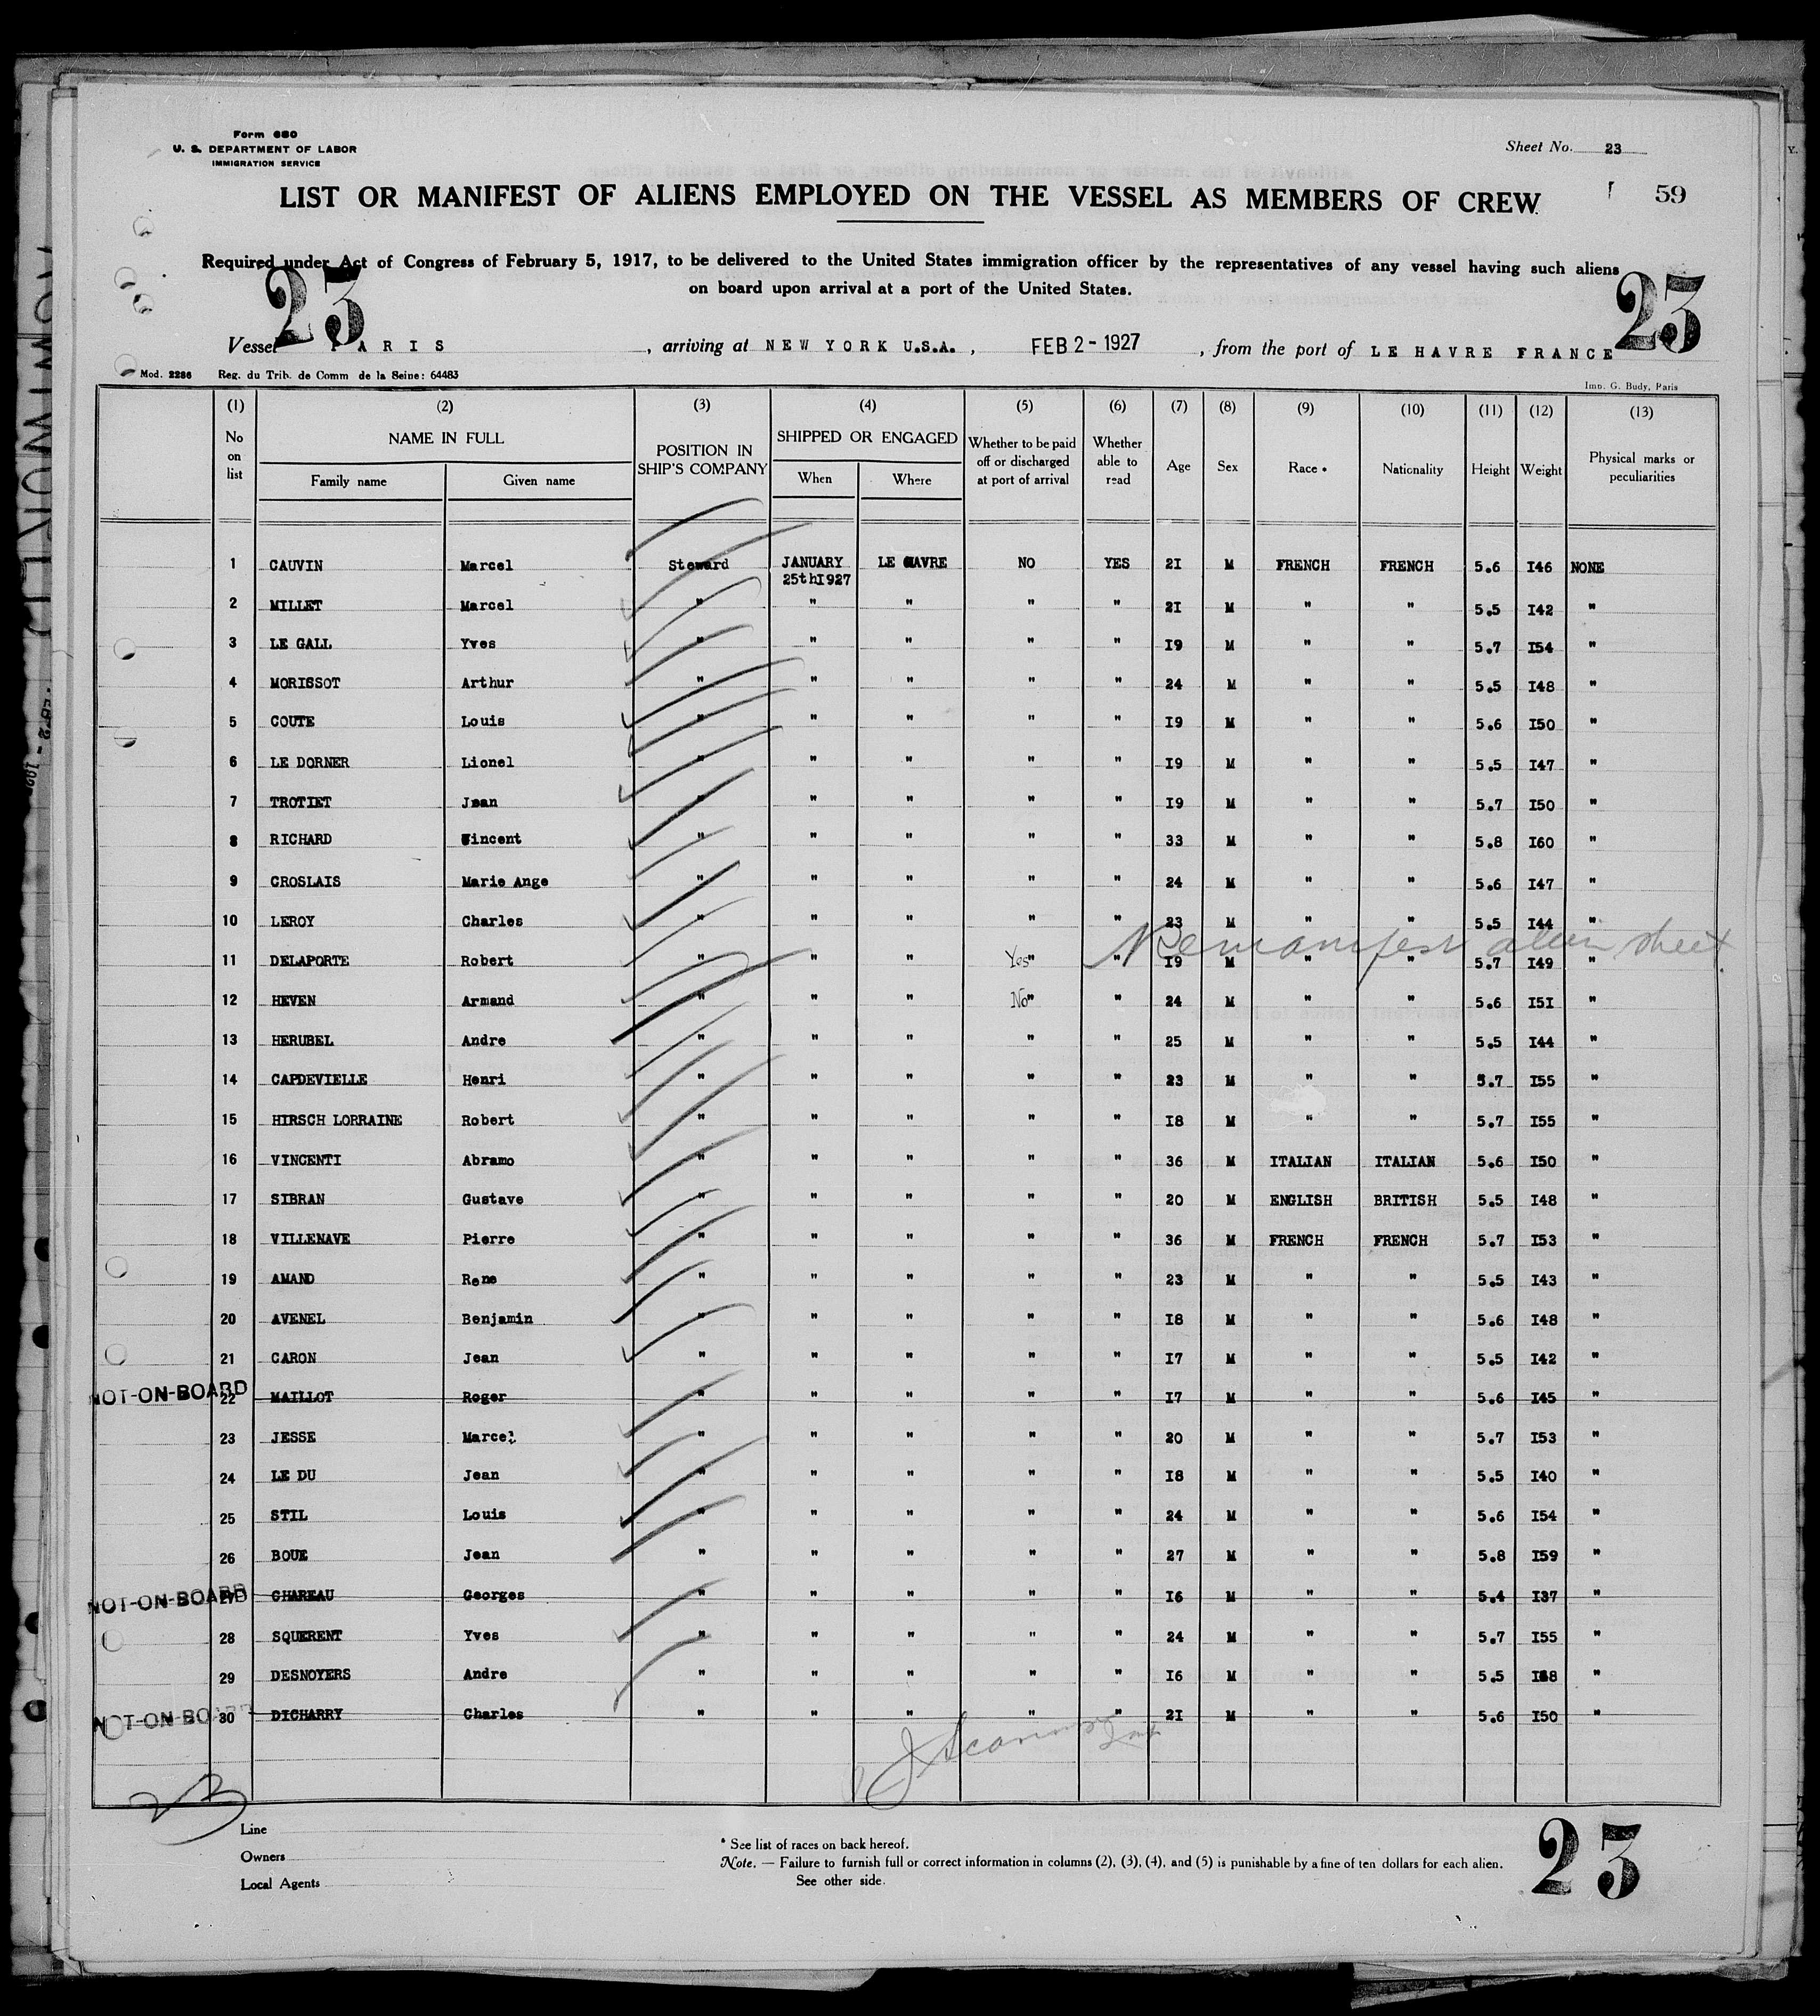 Form 680
U. S. DEPARTMENT OF LABOR
IMMIGRATION SERVICE
Sheet No. 23
LIST OR MANIFEST OF ALIENS EMPLOYED ON THE VESSEL AS MEMBERS OF CREW
59
Required under Act of Congress of February 5, 1917, to be delivered to the United States immigration officer by the representatives of any vessel having such aliens
on board upon arrival at a port of the United States.
23
23
Vessel PARIS, arriving at NEW YORK U.S.A., FEB 2 - 1927, from the port of LE HAVRE FRANCE
Mod. 2286 Reg. du Trib. de Comm de la Seine: 64483
Imp. G. Budy, Paris
(1) (2) (3) (4) (5) (6) (7) (8) (9) (10) (11) (12) (13)
No on list NAME IN FULL POSITION IN SHIP'S COMPANY SHIPPED OR ENGAGED Whether to be paid off or discharged at port of arrival Whether able to read Age Sex Race * Nationality Height Weight Physical marks or peculiarities
Family name Given name When Where
1 CAUVIN Marcel Steward JANUARY 25thI927 LE HAVRE NO YES 2I M FRENCH FRENCH 5.6 I46 NONE
2 MILLET Marcel " " " " " 2I M " " 5.5 I42 "
3 LE GALL Yves " " " " " I9 M " " 5.7 I54 "
4 MORISSOT Arthur " " " " " 24 M " " 5.5 I48 "
5 COUTE Louis " " " " " I9 M " " 5.6 I50 "
6 LE DORNER Lionel " " " " " I9 M " " 5.5 I47 "
7 TROTIET Jean " " " " " I9 M " " 5.7 I50 "
8 RICHARD Vincent " " " " " 33 M " " 5.8 I60 "
9 CROSLAIS Marie Ange " " " " " 24 M " " 5.6 I47 "
10 LEROY Charles " " " " " 23 M " " 5.5 I44 "
Remanifest alien sheet
11 DELAPORTE Robert " " " Yes " " I9 M " " 5.7 I49 "
12 HEVEN Armand " " " No " " 24 M " " 5.6 I5I "
13 HERUBEL Andre " " " " " 25 M " " 5.5 I44 "
14 CAPDEVIELLE Henri " " " " " 23 M " " 5.7 I55 "
15 HIRSCH LORRAINE Robert " " " " " I8 M " " 5.7 I55 "
16 VINCENTI Abramo " " " " " 36 M ITALIAN ITALIAN 5.6 I50 "
17 SIBRAN Gustave " " " " " 20 M ENGLISH BRITISH 5.5 I48 "
18 VILLENAVE Pierre " " " " " 36 M FRENCH FRENCH 5.7 I53 "
19 AMAND Rene " " " " " 23 M " " 5.5 I43 "
20 AVENEL Benjamin " " " " " I8 M " " 5.6 I48 "
21 CARON Jean " " " " " I7 M " " 5.5 I42 "
NOT-ON-BOARD 22 MAILLOT Roger " " " " " I7 M " " 5.6 I45 "
23 JESSE Marcel " " " " " 20 M " " 5.7 I53 "
24 LE DU Jean " " " " " I8 M " " 5.5 I40 "
25 STIL Louis " " " " " 24 M " " 5.6 I54 "
26 BOUE Jean " " " " " 27 M " " 5.8 I59 "
NOT-ON-BOARD 27 CHAREAU Georges " " " " " I6 M " " 5.4 I37 "
28 SQUERENT Yves " " " " " 24 M " " 5.7 I55 "
29 DESNOYERS Andre " " " " " I6 M " " 5.5 "
NOT-ON-BOARD 30 DICHARRY Charles " " " " " 2I M " " 5.6 I50 "
23
Line
Owners
Local Agents
* See list of races on back hereof.
Note. — Failure to furnish full or correct information in columns (2), (3), (4), and (5) is punishable by a fine of ten dollars for each alien.
See other side.
23